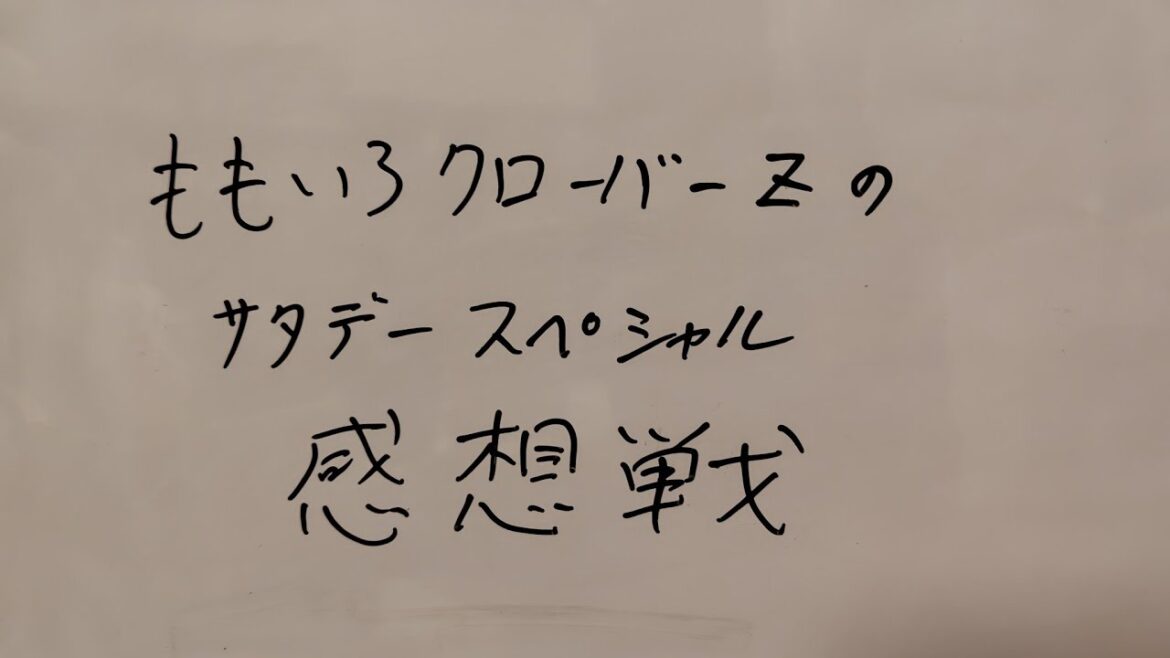 ももいろクローバーZの
サタデースペシャル
感想戦